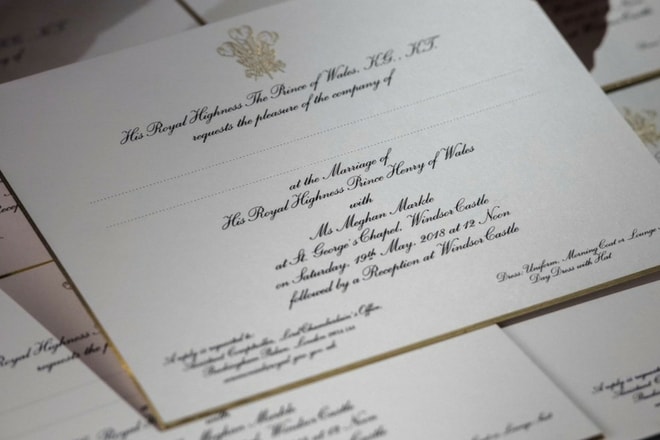 His Royal Highness The Prince of Wales, K.G., K.T.
requests the pleasure of the company of
at the Marriage of
His Royal Highness Prince Henry of Wales
with
Ms Meghan Markle
at St. George's Chapel, Windsor Castle
on Saturday, 19th May, 2018 at 12 Noon
followed by a Reception at Windsor Castle
A reply is requested to:
Comptroller, Lord Chamberlain's Office,
Buckingham Palace, London
Dress: Uniform, Morning Coat or Lounge
Day Dress with Hat
His Royal Highness
requests the
Meghan Markle
Windsor Castle
A reply is requested
Buckingham
or Lounge Suit